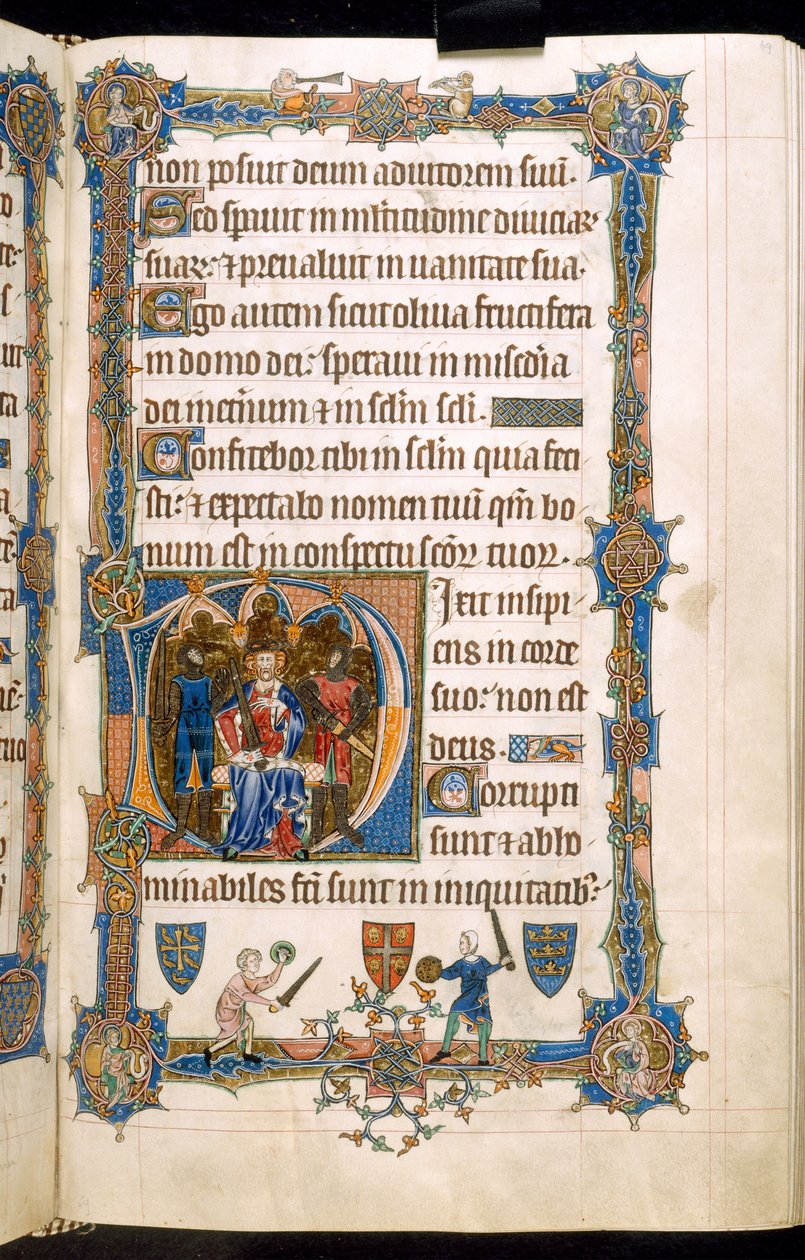 69
non posuit deum adiutorem suū.
Sed spauit in mltitudine diuiciaꝝ
suaꝝ: ⁊ preualuit in uanitate sua.
Ego autem sicut oliua fructifera
in domo dei: speraui in misedia
dei in etnum ⁊ in sclm scli.
Confitebor tibi in sclm quia feci
sti: ⁊ expectabo nomen tuū qm bo
num est in conspectu scoꝝ tuoꝝ.
Dixit insipi
ens in corde
suo: non est
deus.
Corrupti
sunt ⁊ abho
minabiles fcī sunt in iniquitatibꝰ: